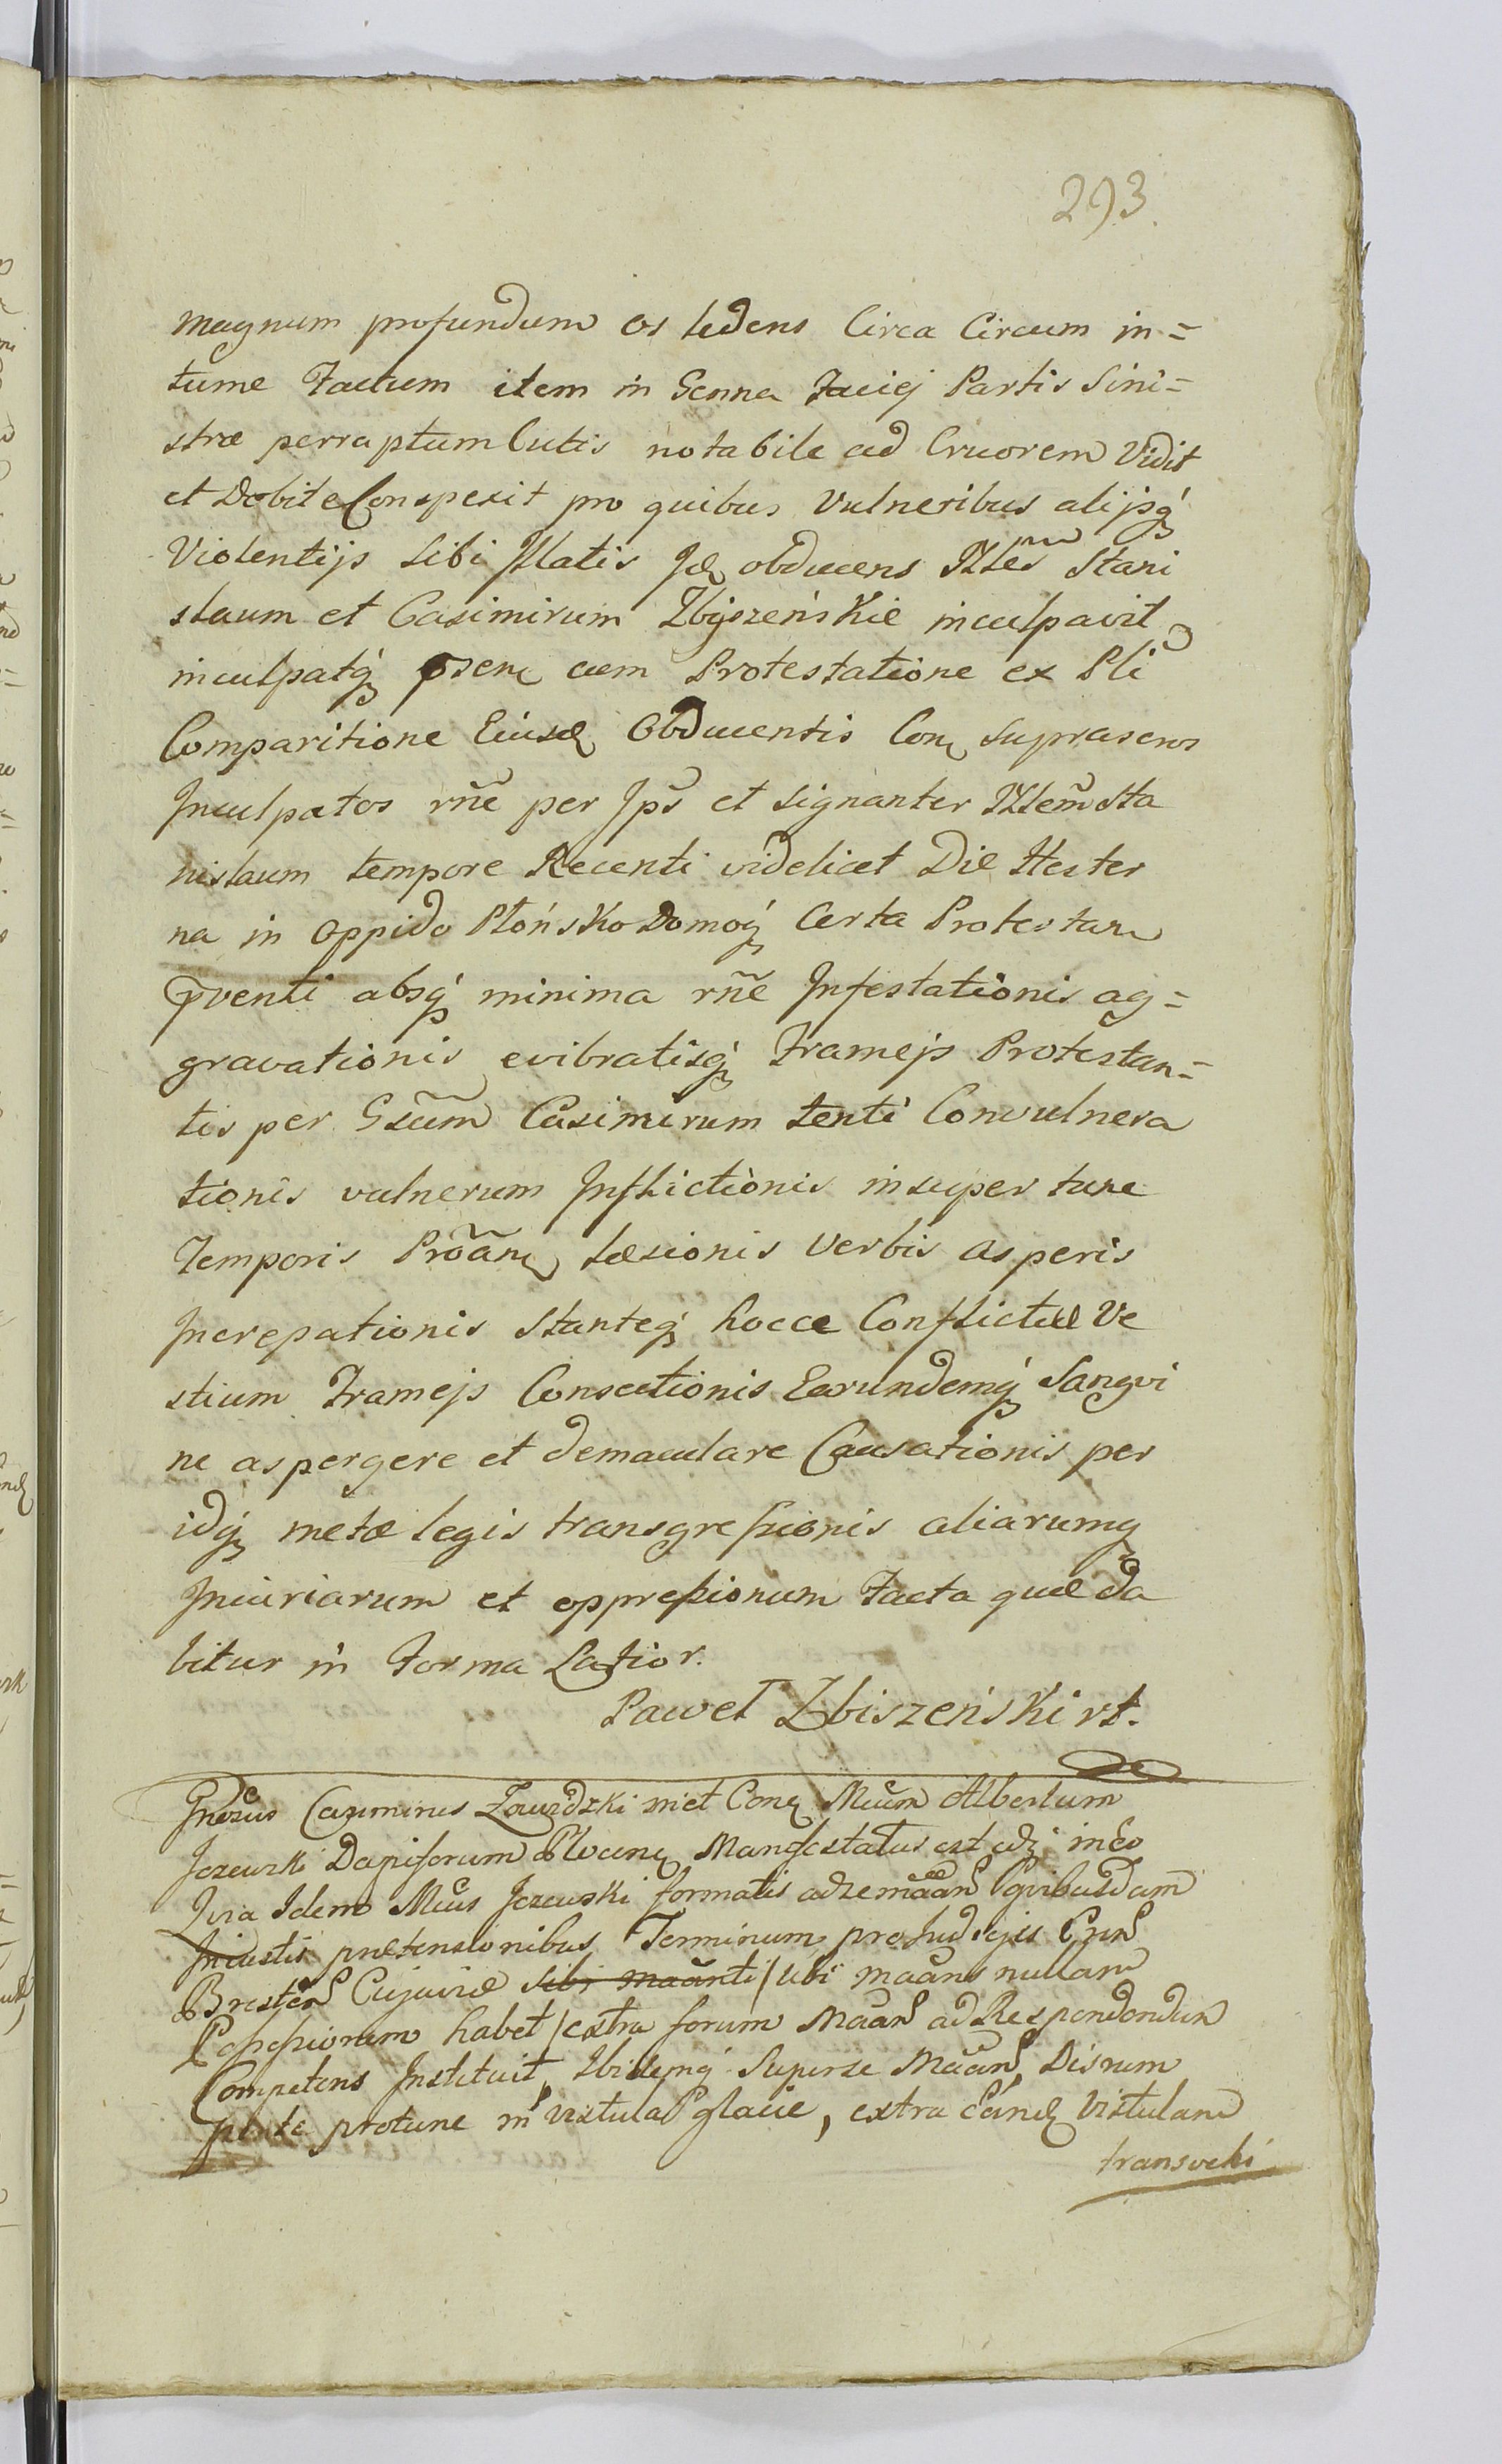 293.
magnum profundum os ledens Circa Circum in=
tume Factum item in Genna Faciej Partis Sini=
stræ perraptum Cutis notabile ad Cruorem Vidit
et Debite Conspexit pro quibus Vulneribus alijsq́
Violentijs sibi Illatis Id obducens Stani
slaum et Casimirum Zbijszeńskie inculpavit
inculpatq́ cum Protestatione ex Pli
Comparitione Eiusd Obducentis Con suprascros
Inculpatos rñe per Ips̃ et signanter Sta
nislaum tempore Recenti videlicet Die Hester
na in Oppido Płońsko Domoq́ Certa Protestan
absq́ minima rñe Infestationis ag=
gravationis evibratisq́ Framejs Protestan=
tis per Gsum̃ Casimirum tenti Convulnera
tionis vulnerum Inflictionis insuper tunc
Temporis læsionis Verbis asperis
Increpationis Stanteq́ hocce Conflictu Ve
stium Framejs Consectionis Earundemq́ Sangvi
ne aspergere et demaculare Causationis per
idq́ metæ legis transgressionis aliarumq
Iniuriarum et oppressionum Facta quæ da
bitur in Forma Latior.
Paweł Zbiszeński rt.
Casimirus Zawidzki met Con Mcum Albertum
Jezewski Dapiferum Plocen Manifestatus est in eo
Quia Idem Mcus Jezewski formatis quibusdam
Iniustis prætensionibus Terminum pro
Cujaviæ sibi maanti / ubi maans nullam
Possessionem habet / extra forum Maan ad Respondendum
Competens Instituit, Ibidemq́ Super se Maan,
protunc in Vistula glacie, extra eand Vistulam
transvehi